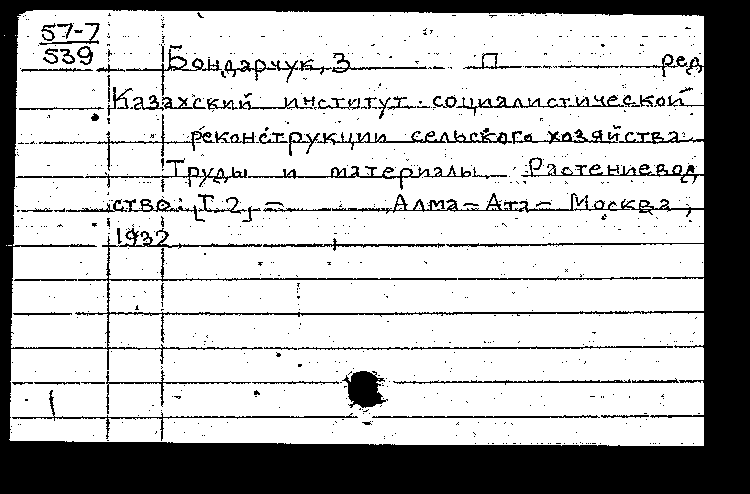 57-7
539
Бондарчук, З П ред
Казахский институт социалистической
реконструкции сельского хозяйства
Труды и материалы. Растениевод
ство: [Т. 2] = Алма-Ата - Москва,
1932